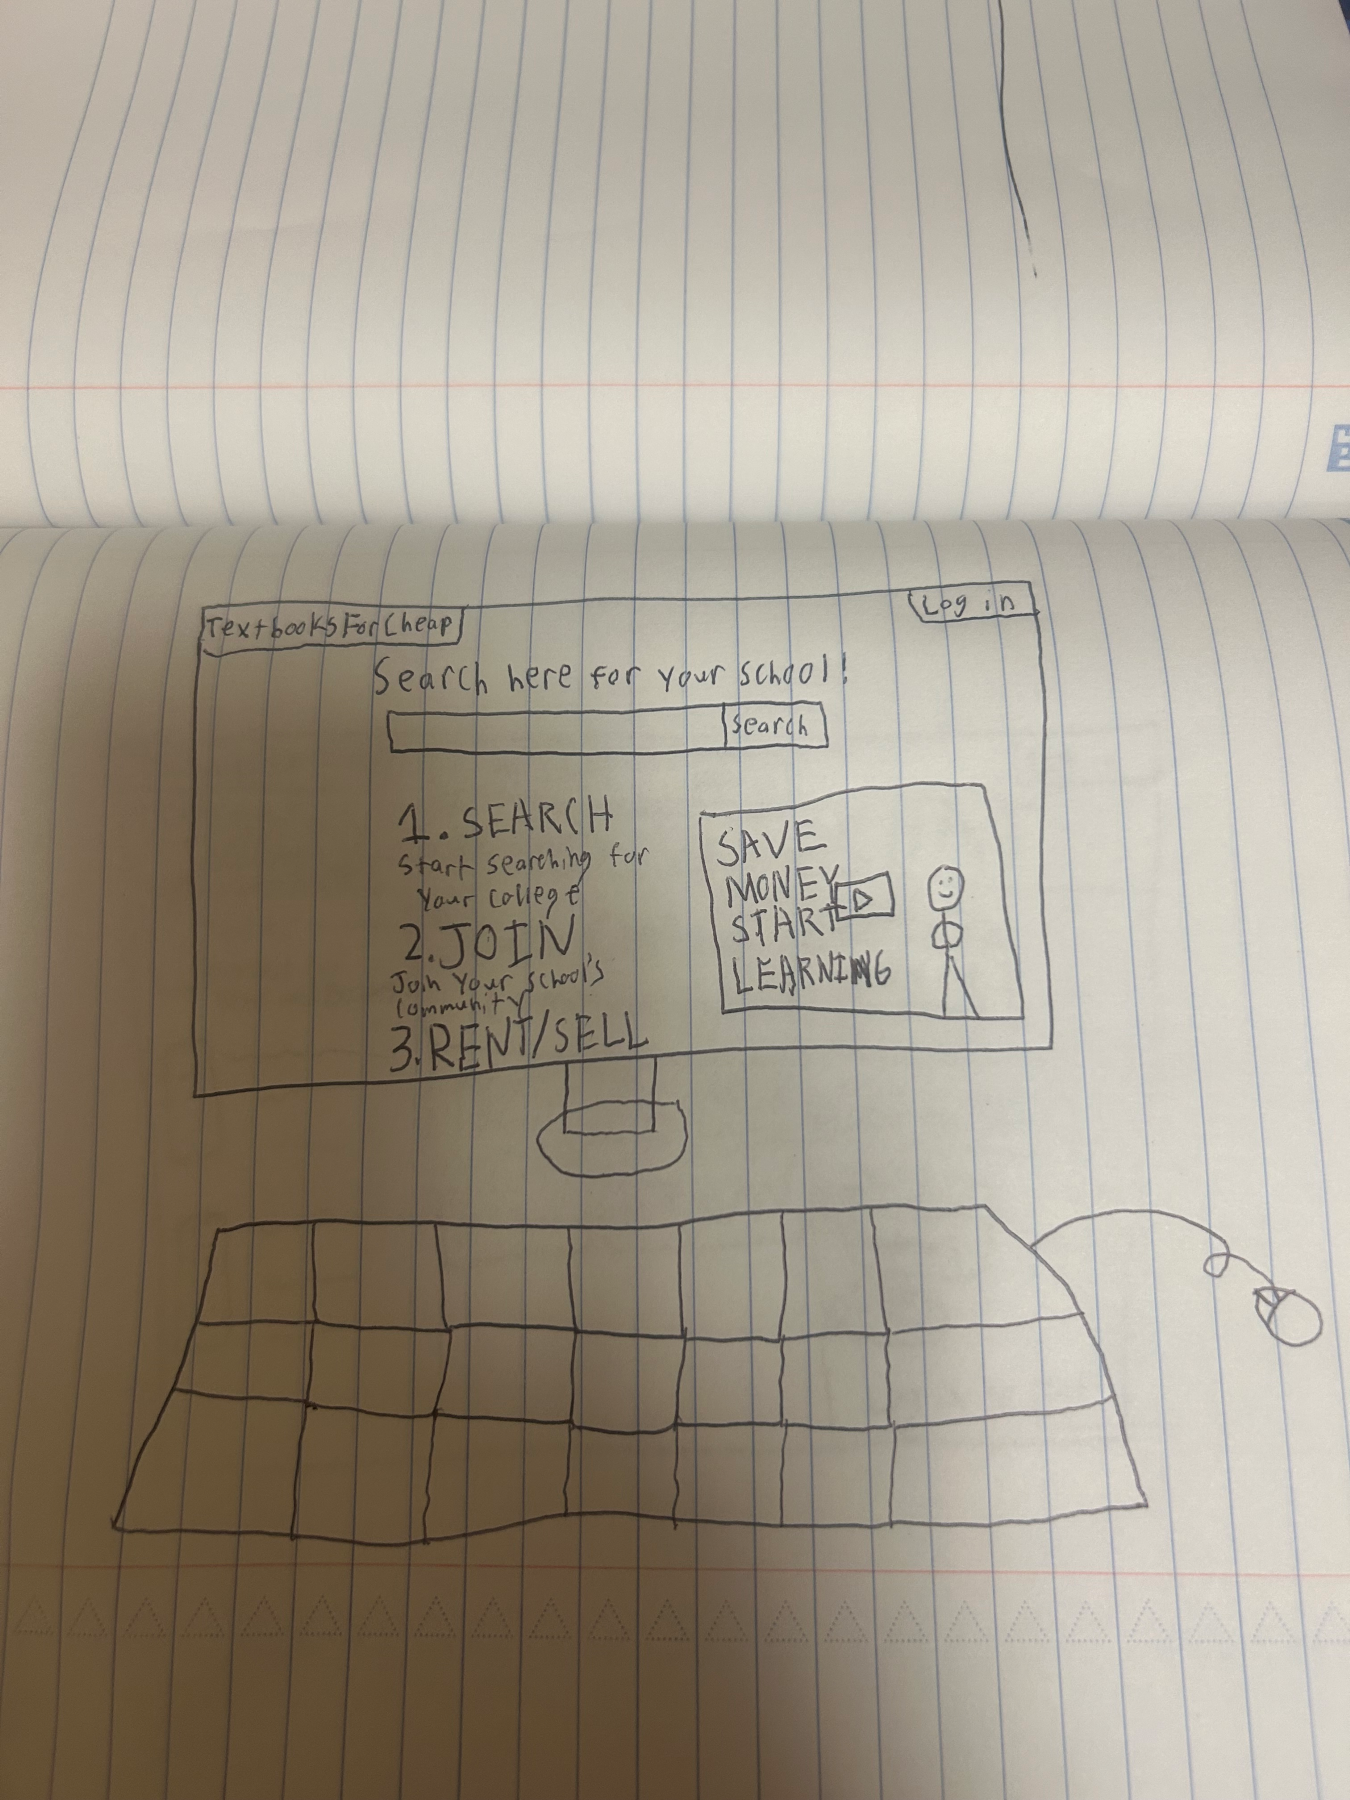 TextbooksForCheap
Log in
Search here for your school!
Search
1. SEARCH
Start searching for
your college
2. JOIN
Join your school's
community
3. RENT/SELL
SAVE
MONEY
START
LEARNING